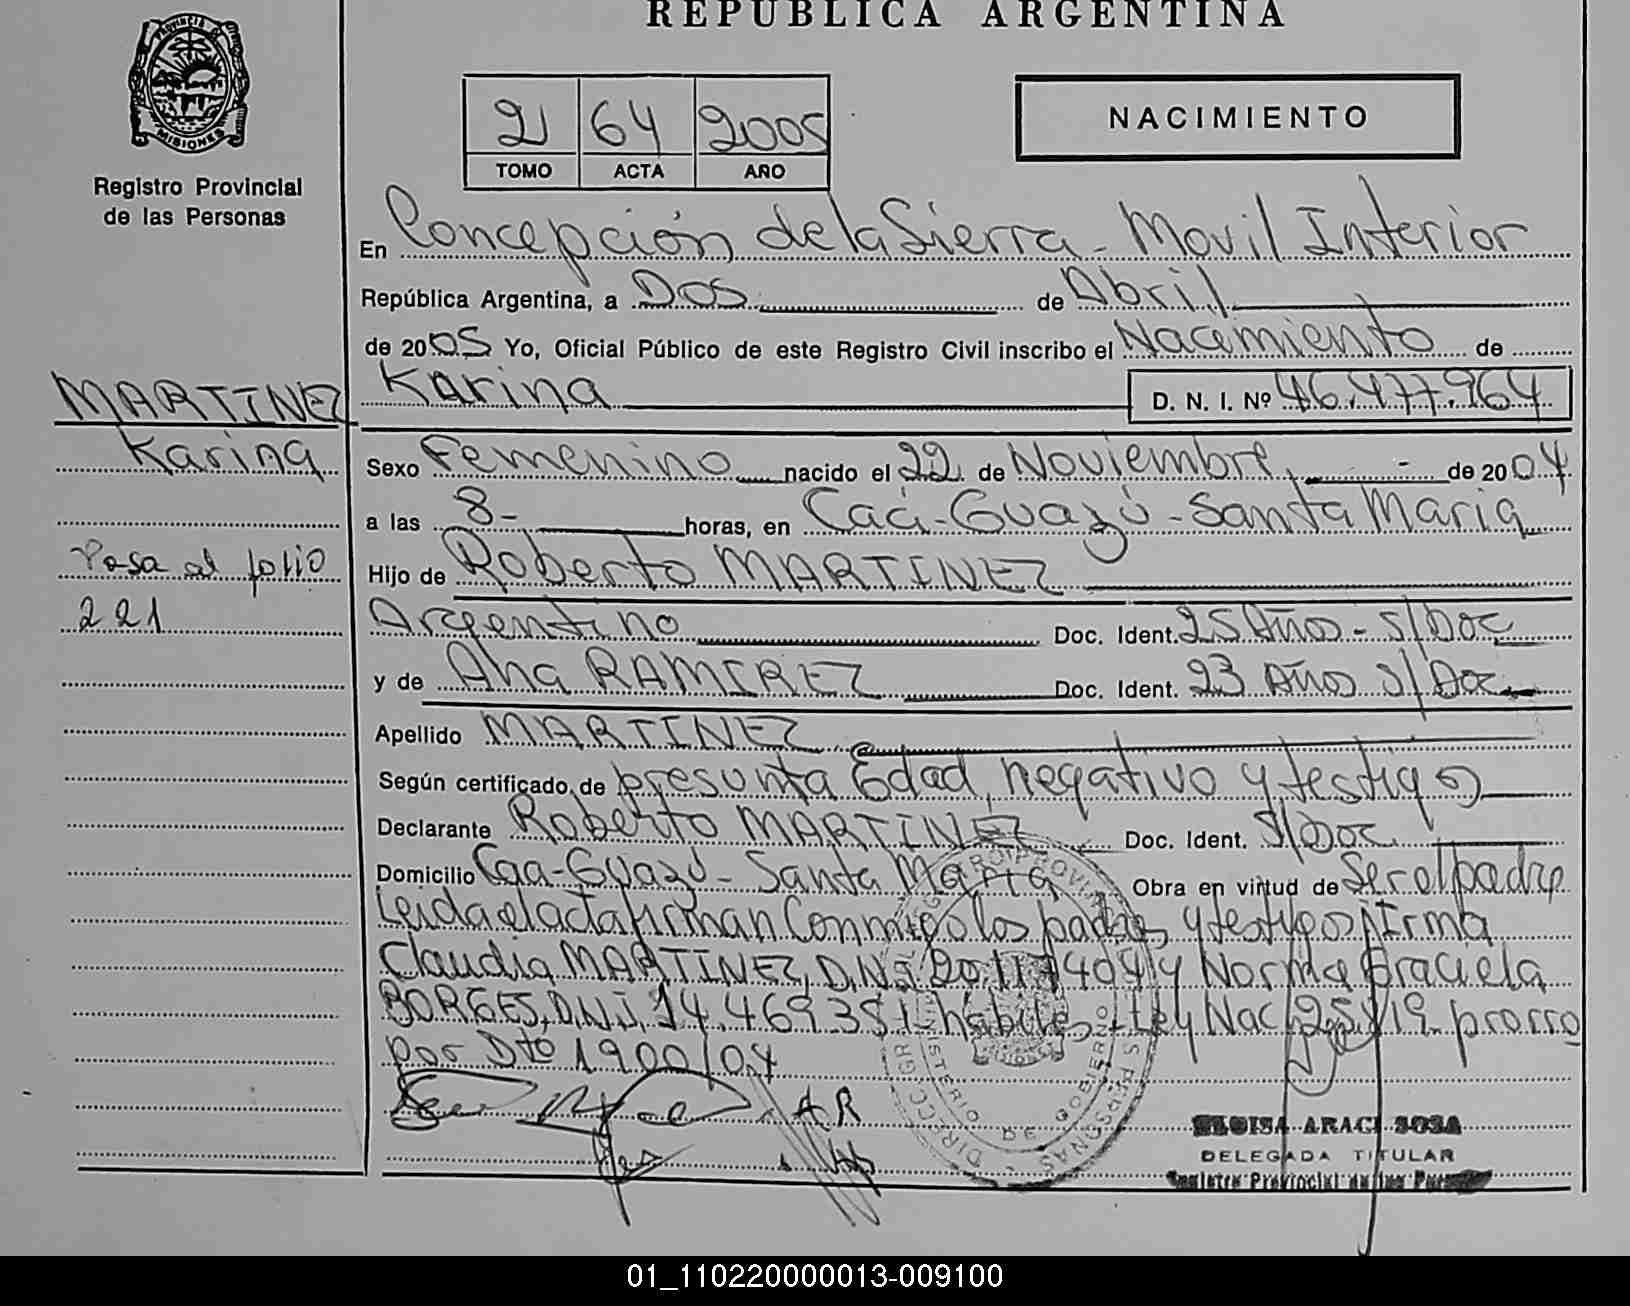 REPUBLICA ARGENTINA
PROVINCIA DE
MISIONES
Registro Provincial
de las Personas
2 64 2005
TOMO ACTA AÑO
NACIMIENTO
En Concepción de la Sierra - Movil Interior
República Argentina, a Dos de Abril
de 2005 Yo, Oficial Público de este Registro Civil inscribo el Nacimiento de
Karina D. N. I. Nº 46.477.964
MARTINEZ
Karina
Pasa al folio
221
Sexo Femenino nacido el 22 de Noviembre, - de 2004
a las 8- horas, en Caá-Guazú - Santa Maria
Hijo de Roberto MARTINEZ
Argentino Doc. Ident. 25 Años - S/Doc
y de Ana RAMIREZ Doc. Ident. 23 Años S/Doc
Apellido MARTINEZ
Según certificado de presunta Edad, negativo y testigos
Declarante Roberto MARTINEZ Doc. Ident. S/Doc
Domicilio Caa-Guazú - Santa Maria Obra en virtud de Ser el padre
Leida el acta firman Conmigo los padres y testigos Irma
Claudia MARTINEZ, D.N.I. y Norma Graciela
BORGES, D.N.I. 14.469.351 habiles - Ley Nac 25819 prorro
por Dto 1900/04
A.R
ELOISA ARACI SOSA
DELEGADA TITULAR
Registro Provincial de las Personas
01_110220000013-009100